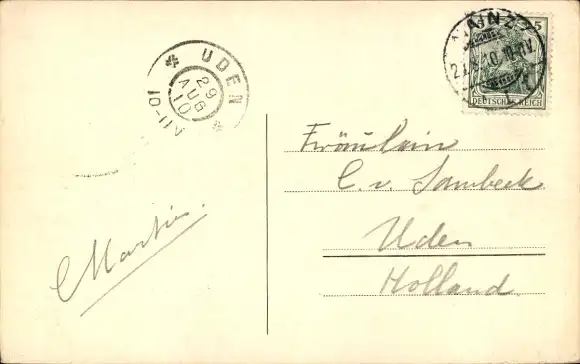 UDEN
29
AUG
10
MAINZ
5
DEUTSCHES REICH
Fräulein
C. v. Sambeek
Uden
Holland.
Martin.